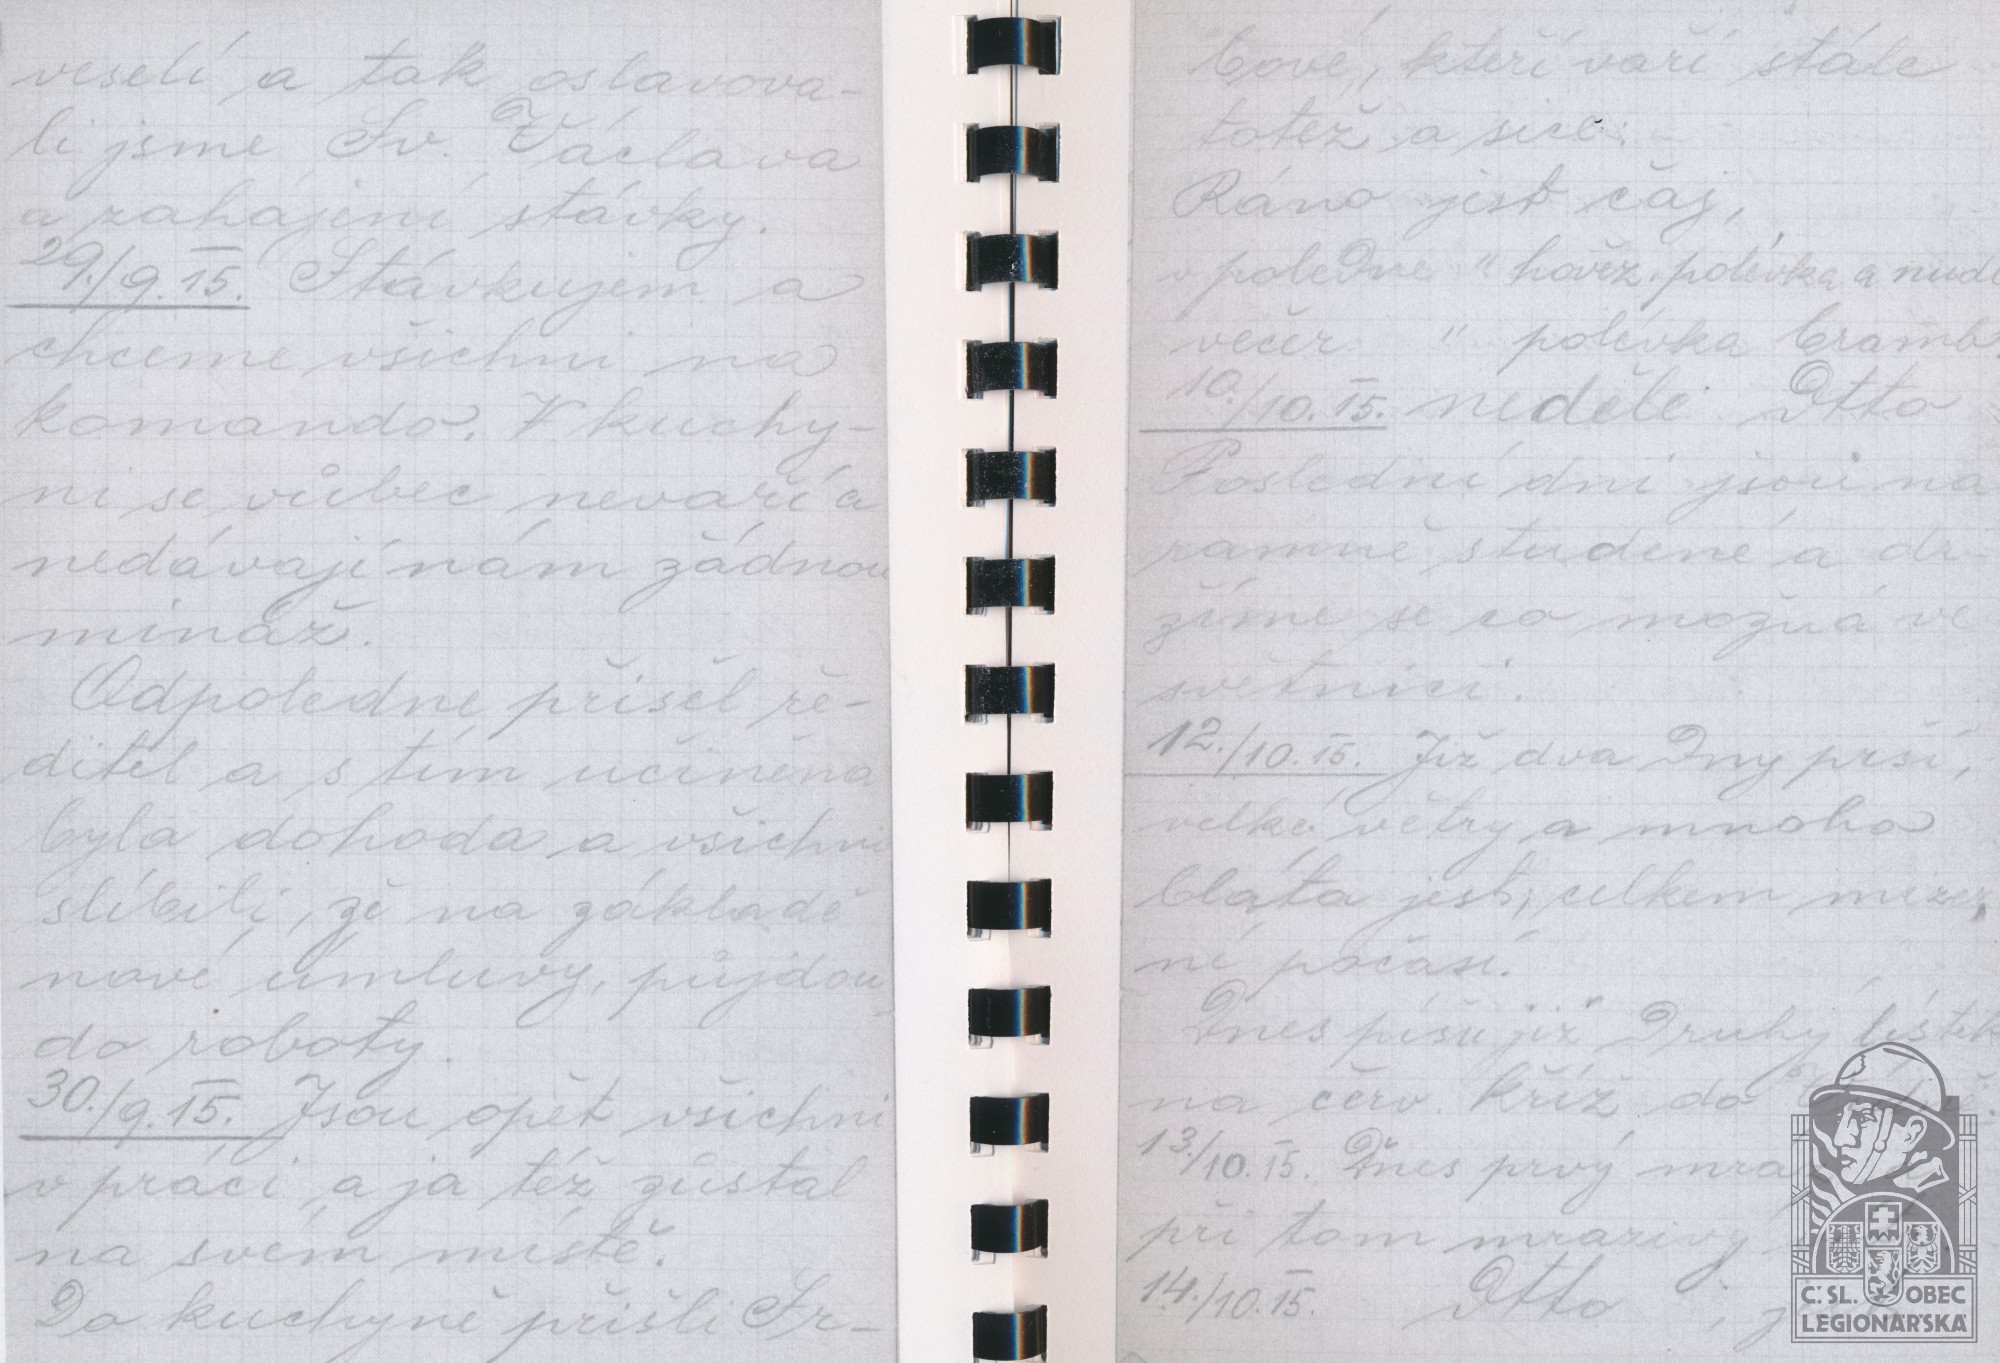 veselí a tak oslavova-
li jsme Sv. Václava
a zahájení stávky.
29./9. 15. Stávkujem a
chceme všichni na
komando. V kuchy-
ni se vůbec nevaří a
nedávají nám žádnou
mináž.
Odpoledne přišel ře-
ditel a s tím učiněna
byla dohoda a všichni
slíbili, že na základě
nové úmluvy, půjdou
do roboty.
30./9. 15. Jsou opět všichni
v práci a já též zůstal
na svém místě.
Do kuchyně přišli Sr-
bové, kteří vaří stále
totéž a sice:
Ráno jest čaj,
v poledne " hověz. polévka a nudl
večer " polévka bramb
10./10. 15. neděle Otto
Poslední dni jsou na
ramně studené a dr-
žíme se co možná ve
světnici.
12./10. 15. Již dva dny prší,
velké větry a mnoho
bláta jest, celkem mizer
ní počasí.
Dnes píšu již druhý lístek
na červ. kříž do
13./10. 15. Dnes prvý
při tom mrazivý
14./10. 15. Otto
Č. SL. OBEC
LEGIONÁŘSKÁ